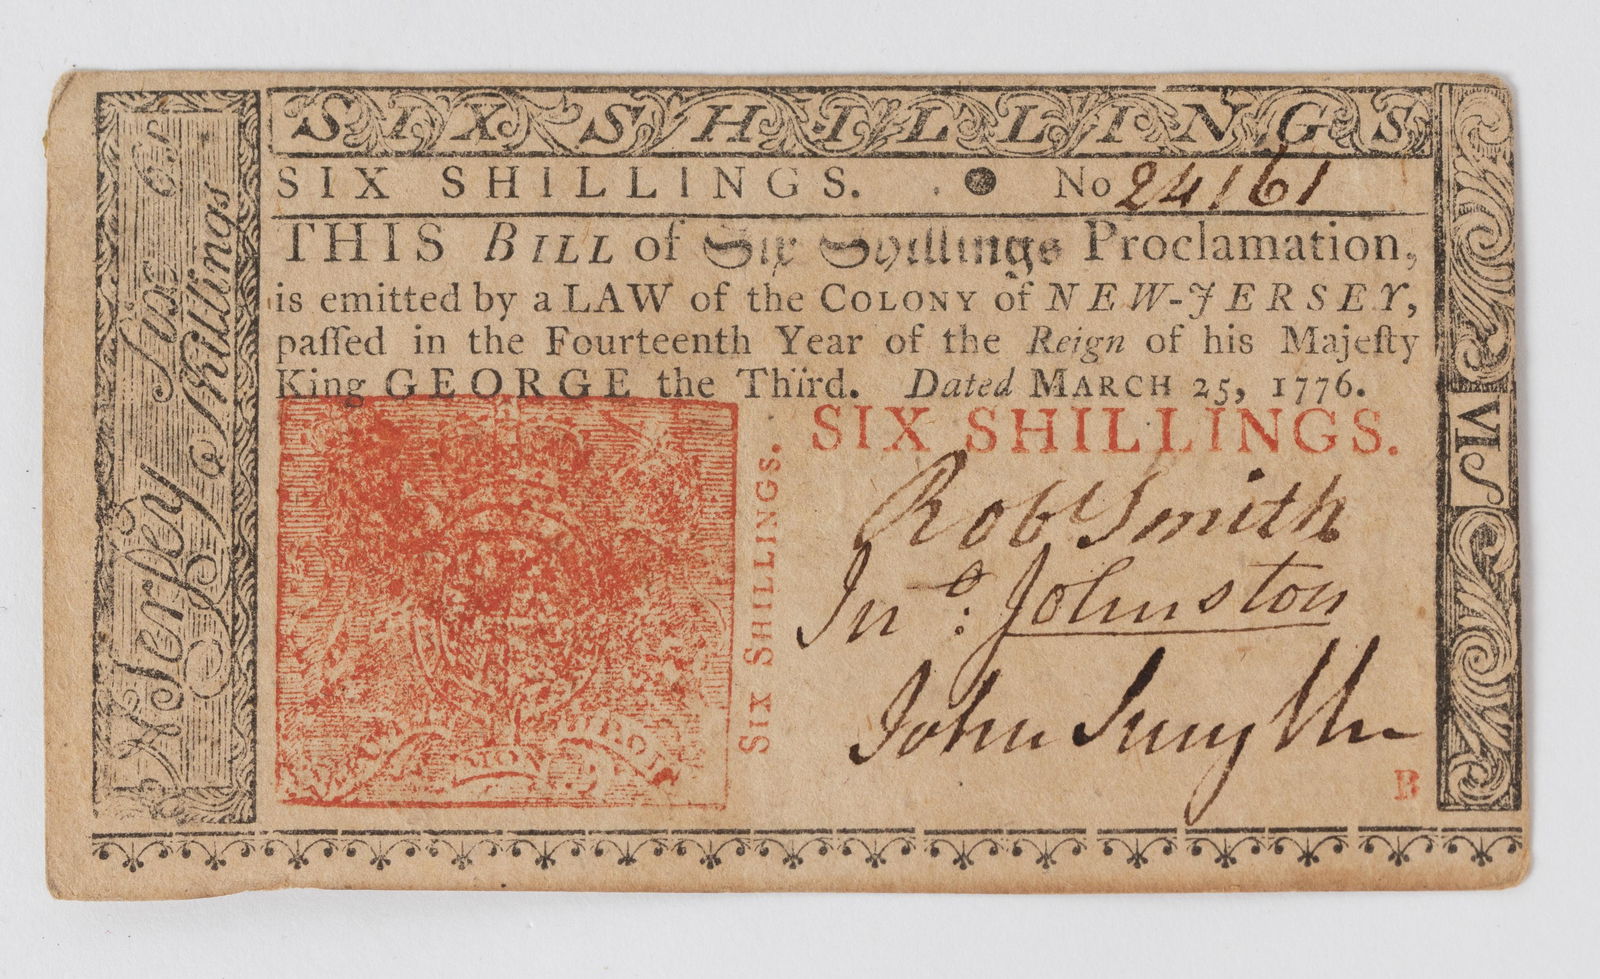 SIX SHILLINGS
SIX SHILLINGS. No 24161
THIS BILL of Six Shillings Proclamation,
is emitted by a LAW of the COLONY of NEW-JERSEY,
paſſed in the Fourteenth Year of the Reign of his Majeſty
King GEORGE the Third. Dated MARCH 25, 1776.
SIX SHILLINGS.
SIX SHILLINGS.
Robt Smith
Jno: Johnston
John Smyth
B
MON
Jerſey
Shillings
VIS